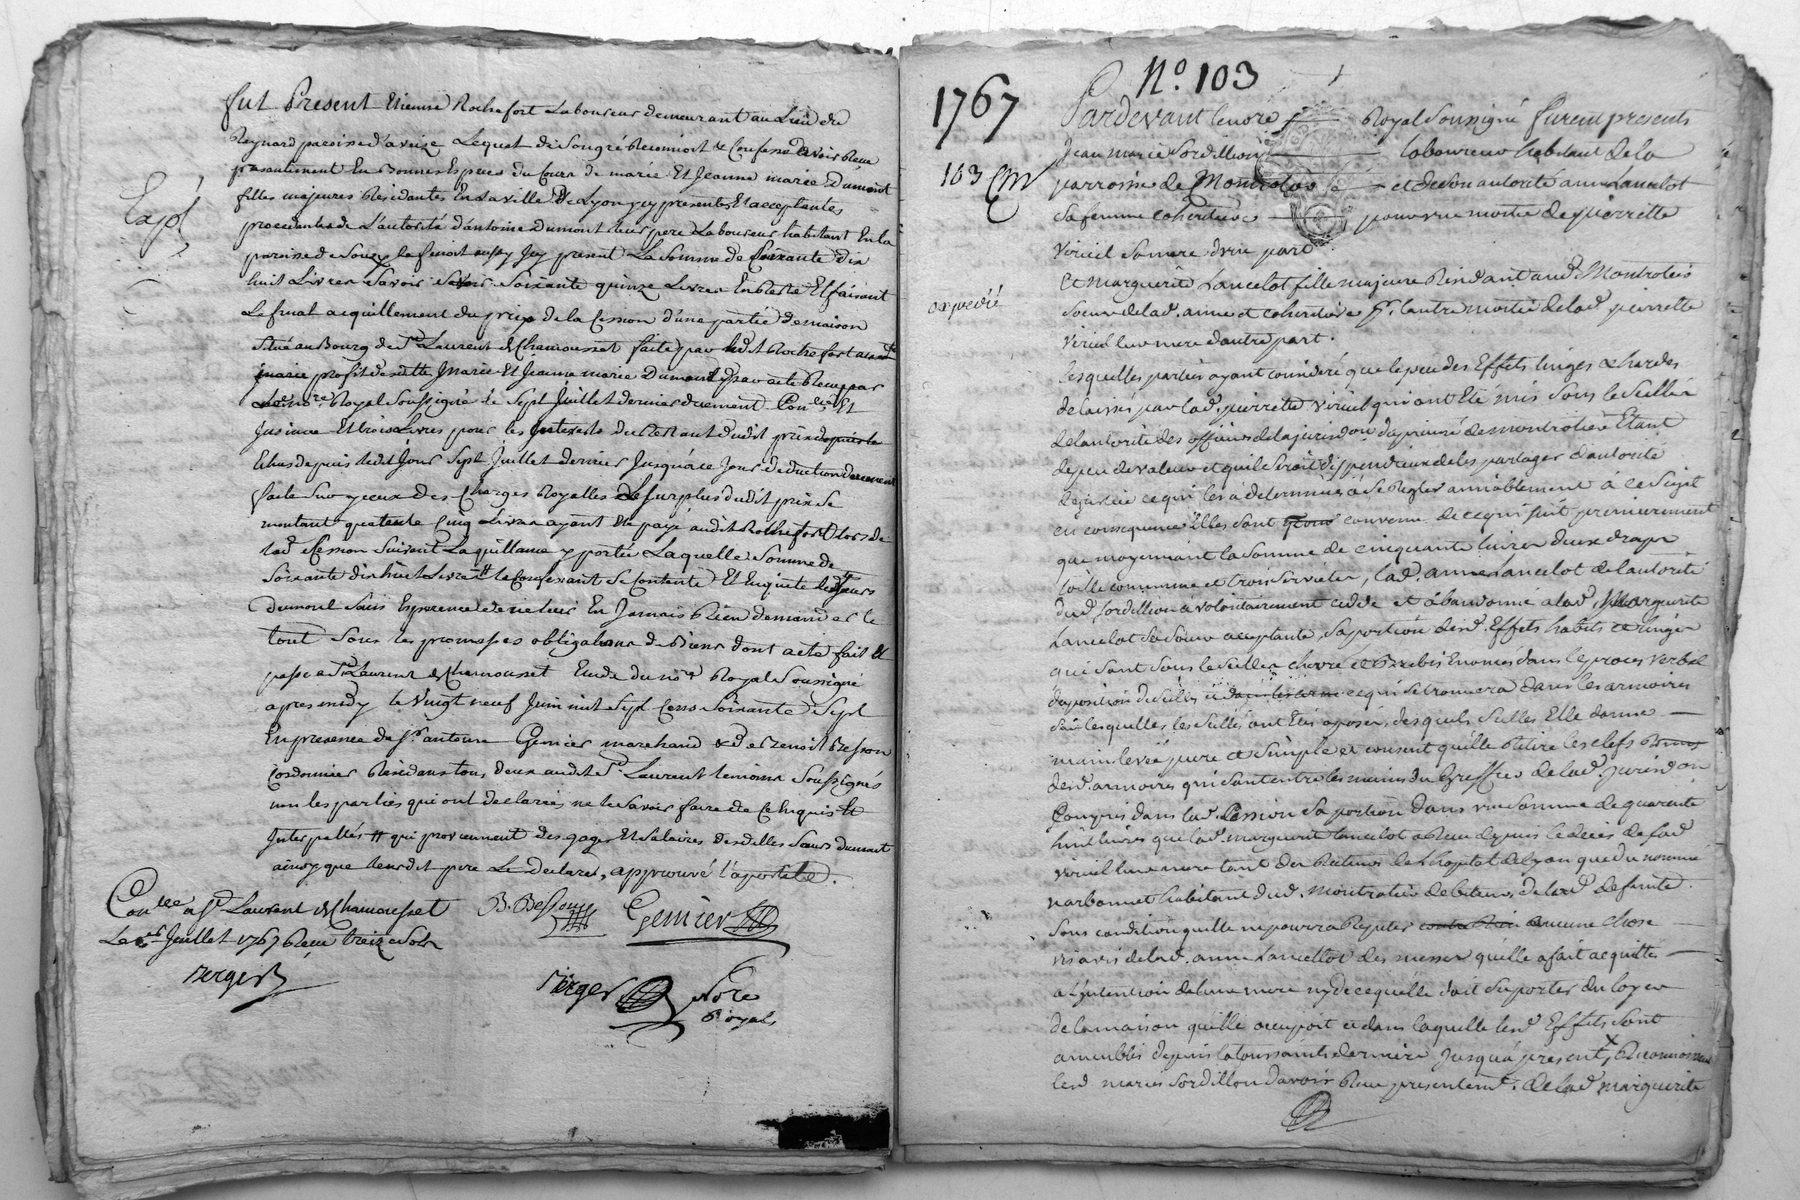 fut Present Etienne Rochefort Laboureur demeurant au Lieu de
Reynard paroisse d'aveize Lequel de Son gré Reconnoit & Confesse avoir Receu
presentement En Bonnes Especes du Cours de marie Et Jeanne marie Dumont
filles majeures Residantes En La ville De Lyon y cy presentes Et acceptantes
procedantes de L'autorité d'antoine Dumont leur pere Laboureur habitant En la
paroisse de Souzy Jcy present La Somme de Soixante dix
huit Livres Savoir Soixante quinze Livres En Reste Et faisant
Le final acquillement du prix de la Cession d'une partie de maison
Situé au Bourg de St Laurent de Chamousset faite par ledit Rochefort
profit desdittes Marie Et Jeanne marie Dumont par acte Receu par
nore Royal Soussigné le Sept Juillet dernier duement Con lé Et
Et trois Livres pour les Jnterests du Restant dudit prix
Echus depuis ledit Jour Sept Juillet dernier Jusqu'a ce Jour deduction duement
faite Sur yceux des Charges Royalles Le Surplus dudit prix Se
montant quarente Cinq Livres ayant Eté payé audit Rochefort Lors de
lad Cession Suivant La quittance y portée Laquelle Somme de
Soixante dix huit Livres # le Confessant Se Contente Et En quite lesd Sœurs
Dumont Sans Esperence de ne leur En Jamais Rien demander le
tout Sous les promesses obligations de Biens dont acte fait Et
passé a St Laurent de Chamousset Etude du nore Royal Soussigné
apres midy le Vingt neuf Juin mil Sept Cens Soixante Sept
En presence de Sr antoine Gemier marchand & de Benoit Besson
Cordonnier Residans tous deux audit St Laurent temoins Soussignés
non les parties qui ont declarées ne le Savoir faire de Ce Enquis Et
Jnterpellés # qui proviennent des gages Et Salaires desdittes Sœurs dumont
ainsy que leurdit pere Le declare, approuvé l'apostille.
Con lée a St Laurent de Chamousset
Le Juillet 1767 Reçu treize Sols
B. Besson
Gemier
Berger
Berger
Nore
Royal
1767
No. 103
103
expedié
Pardevant le nore Royal Soussigné furent presents
Jean marie Sordillion laboureur habitant de la
parroisse de Montrotier et de Son autorité anne Lancelot
Sa femme coheritiere pour une moitié de pierrette
Viricel Sa mere d'une part
Et marguerite Lancelot fille majeure Residant aud Montrotier
Soeur de lad. anne et coheritiere pr. l'autre moitié de lad pierrette
Viricel leur mere d'autre part.
lesquelles parties ayant consideré que le peu des Effets linges & hardes
delaissés par lad. pierrette Viricel qui ont Eté mis Sous le Scellé
de l'autorité des officiers de la jurisdon du prieuré de montrotier Etant
de peu de valeur et qu'il Seroit dispendieux de les partager d'autorité
de justice ce qui les a determiné à Se Regler amiablement à ce Sujet
en consequence Elles Sont convenu de ce qui Suit premierement
que moyennant la Somme de cinquante livres deux draps
toille commune et trois Serviettes, lad. anne Lancelot de l'autorité
dud Sordillion a volontairement cedé et abandonné a lad. Marguerite
Lancelot Sa Soeur acceptante, Sa portion desd. Effets habits et linges
qui Sont Sous le Scellé chevre et Brebis Enoncés dans le procès verbal
d'aposition de Scellés et ce qui Se trouvera dans les armoires
Sur lesquelles les Scellés ont Eté aposés, desquels Scellés Elle donne
main levée pure et Simple et consent qu'elle Retire les clefs
desd. armoires qui Sont entre les mains du Greffier de lad. Jurisdon
Compris dans lad. Cession Sa portion dans une Somme de quarante
huit livres que lad. marguerite Lancelot a Reçu depuis le decès de lad
Viricel leur mere tant des Recteurs de l'hopital de Lyon que du nommé
narbonnet habitant dud. Montrotier debiteurs de lad defunte.
Sous condition qu'elle ne pourra Repeter aucune chose
vis avis de lad. anne Lancellot des messes qu'elle a fait acquitté
a l'intention de leur mere ny de ce qu'elle doit Suporter du loyer
de la maison qu'elle occupoit et dans laquelle lesd Effets Sont
ameublés depuis la toussaints derniere Jusqu'à present, Reconnoissant
led maries Sordillon d'avoir Reçu presentemt. de lad marguerite